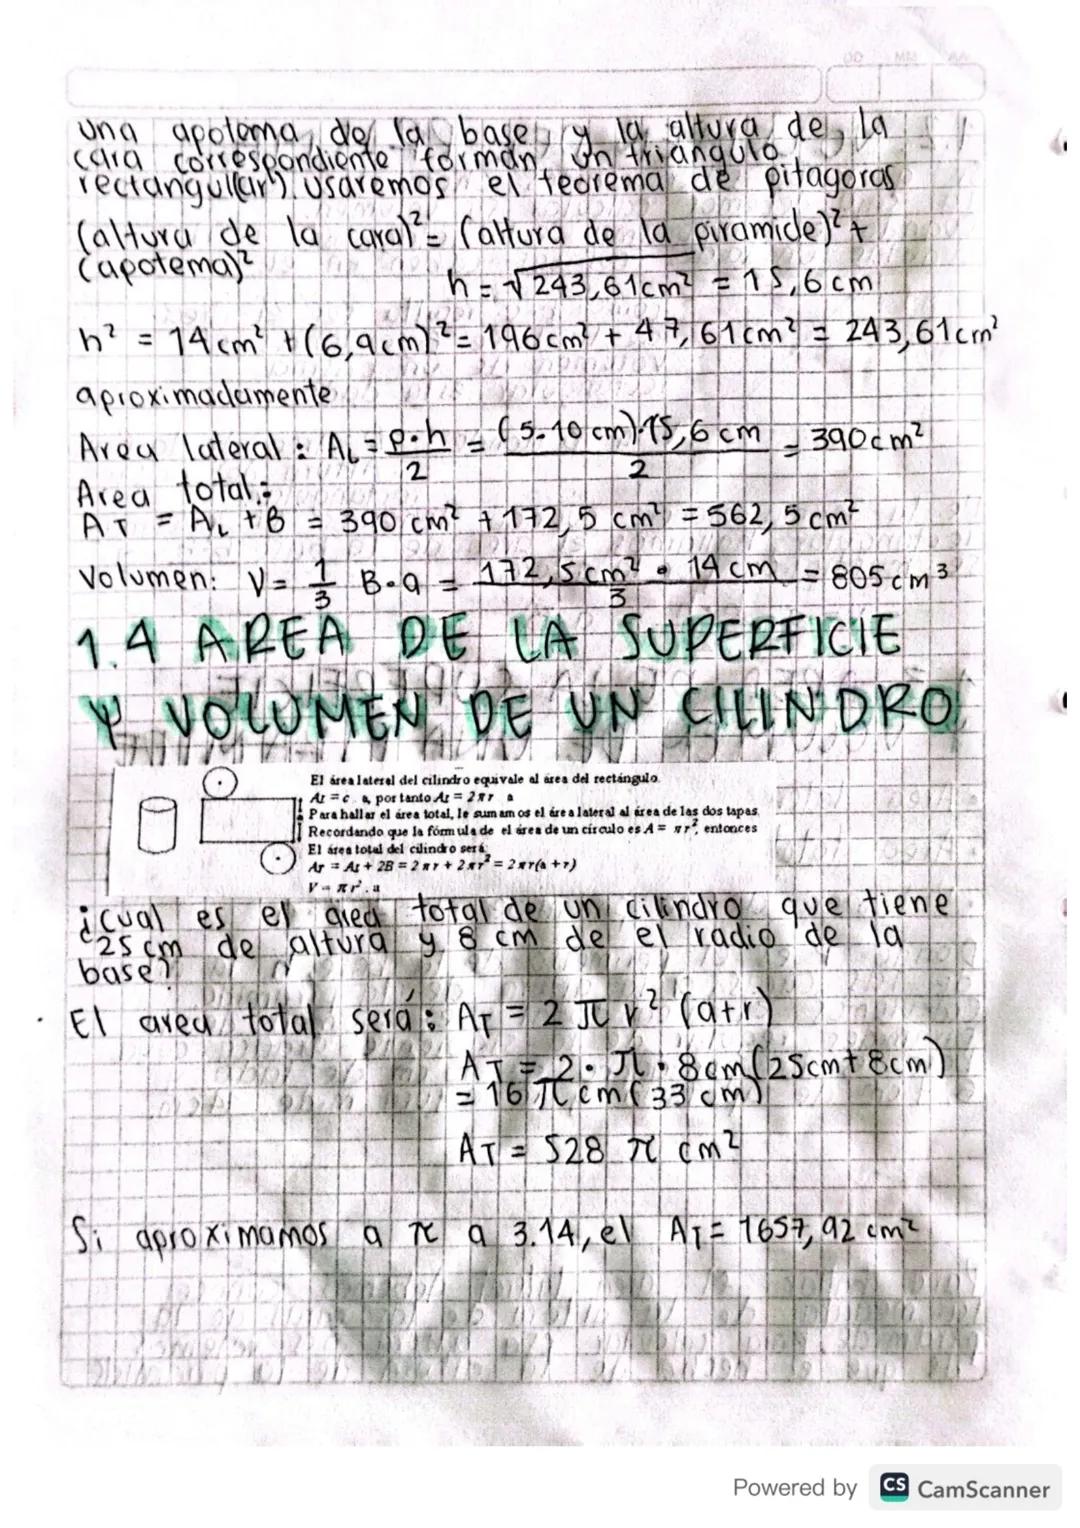 DD MM AA
una apotema de la base y la altura de la
cara correspondiente forman un triangulo
rectangul(ar). usaremos el teorema de pitagoras
(altura de la cara)² = (altura de la piramide)² +
(apotema)²
h = √243,61cm² = 15,6 cm
h² = 14cm² + (6,9cm)² = 196cm² + 47,61cm² = 243,61cm²
aproximadamente
Area lateral: A_L = p·h/2 = (5·10 cm)·15,6 cm/2 = 390cm²
Area total:
A_T = A_L + B = 390 cm² + 172,5 cm² = 562,5 cm²
Volumen: V = 1/3 B·a = 172,5cm² · 14cm/3 = 805cm³
1.4 AREA DE LA SUPERFICIE
Y VOLUMEN DE UN CILINDRO
El área lateral del cilindro equivale al área del rectángulo.
A_L = c . a, por tanto A_L = 2πr a
Para hallar el área total, le sumamos el área lateral al área de las dos tapas.
Recordando que la fórmula de el área de un círculo es A = πr², entonces
El área total del cilindro será:
A_T = A_L + 2B = 2πr + 2πr² = 2πr(a + r)
V = πr².a
¿cual es el area total de un cilindro que tiene
25 cm de altura y 8 cm de el radio de la
base?
El area total será: A_T = 2πr² (a+r)
A_T = 2·π·8cm(25cm+8cm)
= 16πcm(33cm)
A_T = 528 π cm²
Si aproximamos a π a 3.14, el A_T = 1657,92 cm²
Powered by CS CamScanner